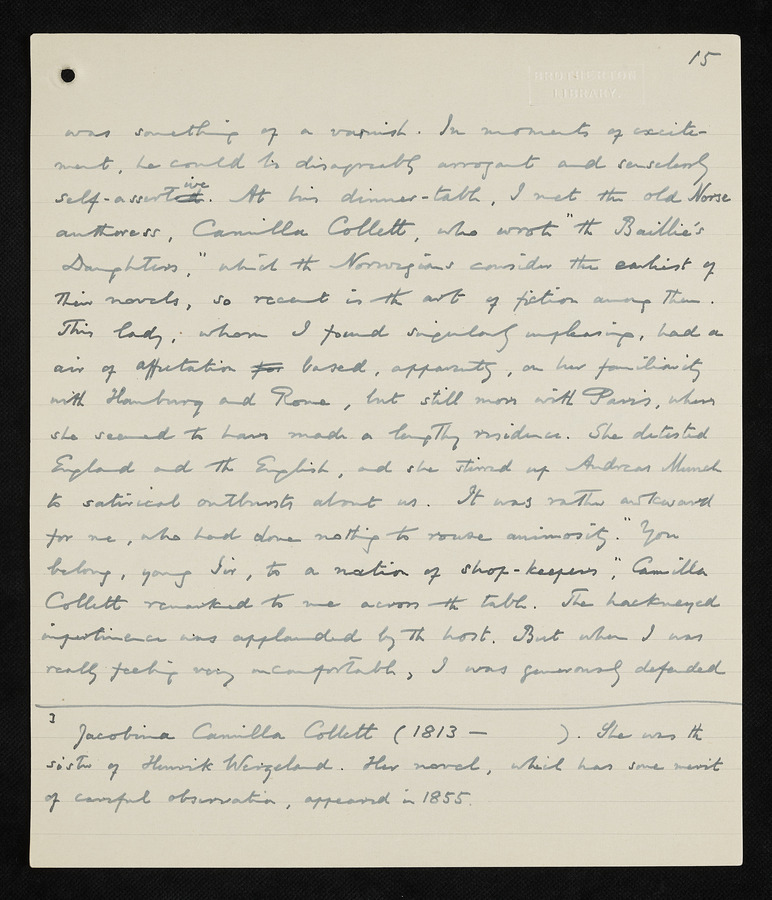 15
BROTHERTON
LIBRARY.
was something of a varnish. In moments of excite-
ment, he could be disagreeably arrogant and senselessly
self-assertive. At his dinner-table, I met the old Norse
authoress, Camilla Collett, who wrote "the Baillie's
Daughters," which the Norwegians consider the earliest of
their novels, so recent is the art of fiction among them.
This lady, whom I found singularly unpleasing, had a
air of affectation for based, apparently, on her familiarity
with Hamburg and Rome, but still more with Paris, where
she seemed to have made a lengthy residence. She detested
England and the English, and she stirred up Andreas Munch
to satirical outbursts about us. It was rather awkward
for me, who had done nothing to rouse animosity. "You
belong, young Sir, to a nation of shop-keepers," Camilla
Collett remarked to me across the table. The hackneyed
impertinence was applauded by the host. But when I was
really feeling very uncomfortable, I was generously defended
3 Jacobina Camilla Collett (1813 — ). She was the
sister of Henrik Wergeland. Her novel, which has some merit
of careful observation, appeared in 1855.